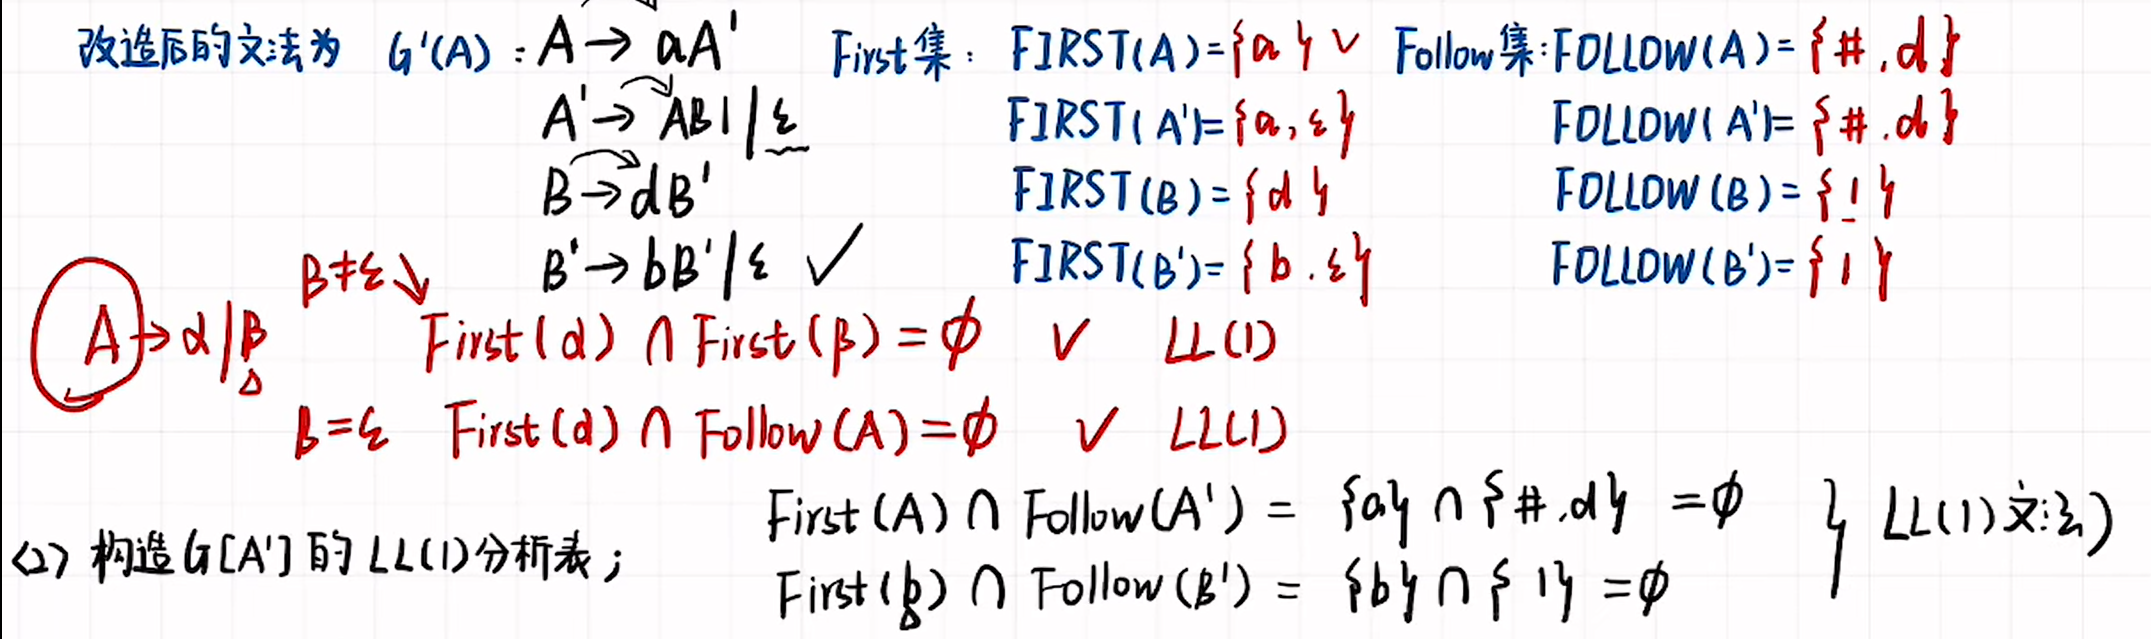 改造后的文法为 G'(A) : A → aA' First集 : FIRST(A)={a} ✓ Follow集:FOLLOW(A)={#.d}
A' → ABl | ε FIRST(A')={a,ε} FOLLOW(A')={#.d}
B → dB' FIRST(B)={d} FOLLOW(B)={l}
B' → bB' | ε ✓ FIRST(B')={b.ε} FOLLOW(B')={l}
β≠ε
A → α | β First(α) ∩ First(β) = ∅ ✓ LL(1)
β=ε First(α) ∩ Follow(A) = ∅ ✓ LL(1)
First(A) ∩ Follow(A') = {a} ∩ {#.d} = ∅ } LL(1)文法)
<2> 构造G[A']的LL(1)分析表;
First(b) ∩ Follow(B') = {b} ∩ {l} = ∅